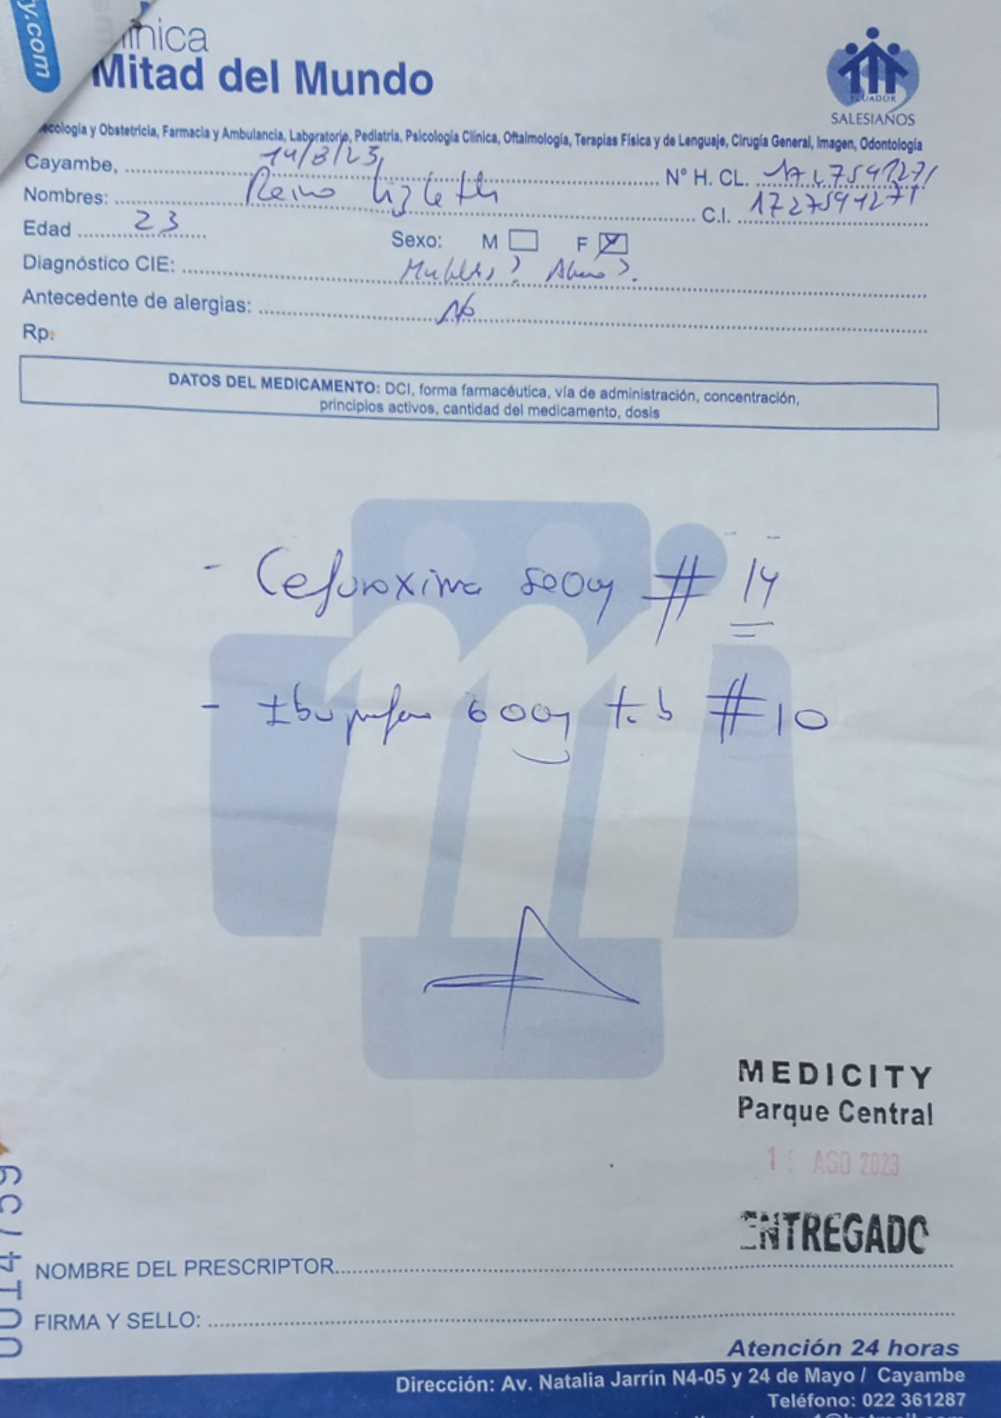 y.com
ínica
Mitad del Mundo
ECUADOR
SALESIANOS
ecología y Obstetricia, Farmacia y Ambulancia, Laboratorio, Pediatría, Psicología Clínica, Oftalmología, Terapias Física y de Lenguaje, Cirugía General, Imagen, Odontología
Cayambe, 14/8/23, N° H. CL.
Nombres: Reino Lizbeth C.I. 1727591271
Edad 23 Sexo: M F
Diagnóstico CIE:
Antecedente de alergias: No
Rp:
DATOS DEL MEDICAMENTO: DCI, forma farmacéutica, vía de administración, concentración,
principios activos, cantidad del medicamento, dosis
- Cefuroxima 500g # 14
- Ibuprofeno 600g tab #10
MEDICITY
Parque Central
AGO 2023
ENTREGADO
NOMBRE DEL PRESCRIPTOR
FIRMA Y SELLO:
Atención 24 horas
Dirección: Av. Natalia Jarrín N4-05 y 24 de Mayo / Cayambe
Teléfono: 022 361287